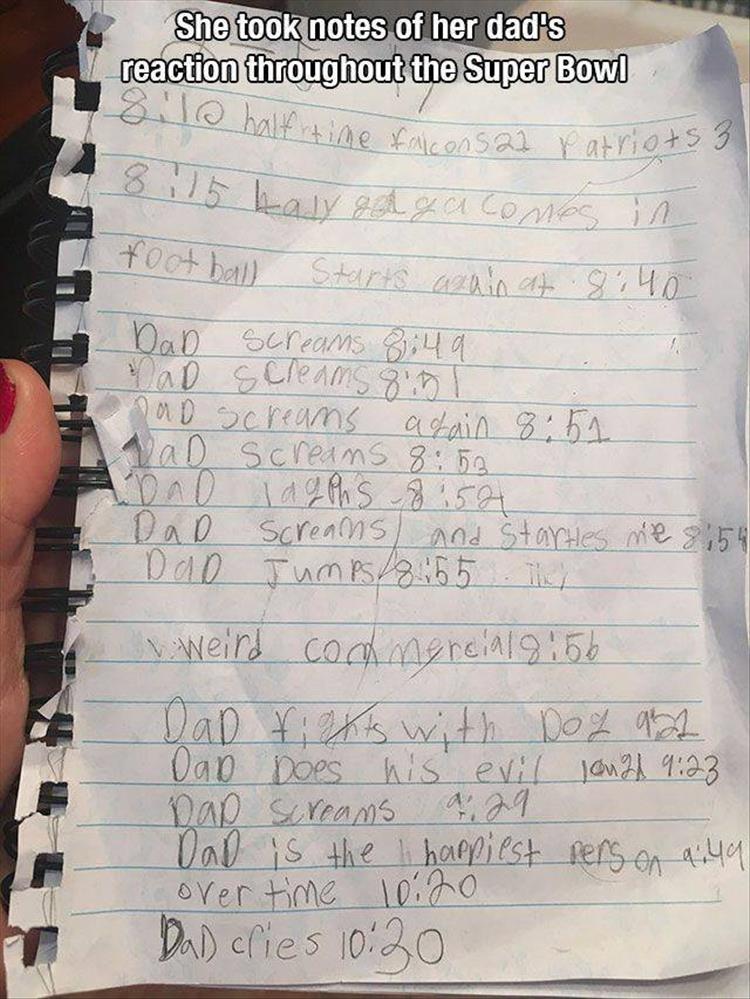 She took notes of her dad's
reaction throughout the Super Bowl
8:10 halftime falcons 21 Patriots 3
8:15 Lady gaga comes in
football Starts again at 8:40
DaD screams 8:49
DaD screams 8:51
DaD screams again 8:51
DaD screams 8:53
DaD laghs 8:52
DaD screams and startles me 8:54
DaD Jumps 8:55
weird commercial 8:56
DaD fights with Dog 9:21
DaD Does his evil 9:23
DaD screams 9:29
DaD is the happiest person 9:49
over time 10:20
DaD cries 10:30